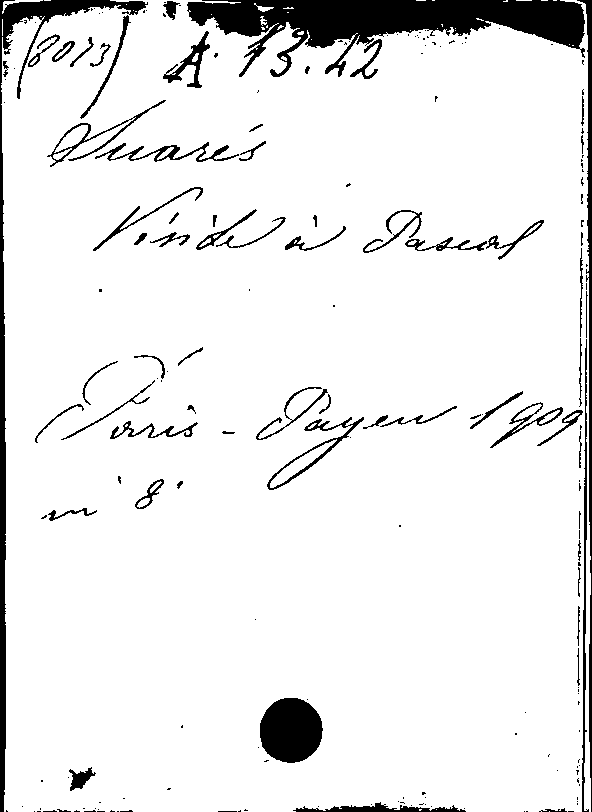 (8073) A. 13.42
Suarés
Visite à Pascal
Paris - Payen 1909
in 8°